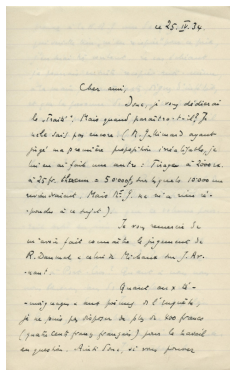 ce 25. IV. 34.
Cher ami,
Donc, je vous dédierai
le "Traité". Mais quand paraîtra-t-il? Je
ne le sais pas encore. (R. ayant
jugé ma première proposition irréalisable, je
lui en ai fait une autre: Tirage à 2000 ex.
à 25 fr. = 50.000 fr, sur lesquels 10.000 me
reviendraient. Mais ne m'a rien ré-
pondu à ce sujet.)
Je vous remercie de
m'avoir fait connaître le jugement de
R. et celui de sur J.
Quant aux té-
moignages aux de l'enquête,
je ne puis pas disposer de plus de 400 francs
(quatre cent francs français) pour le travail
en question. Ainsi donc, si vous pouvez